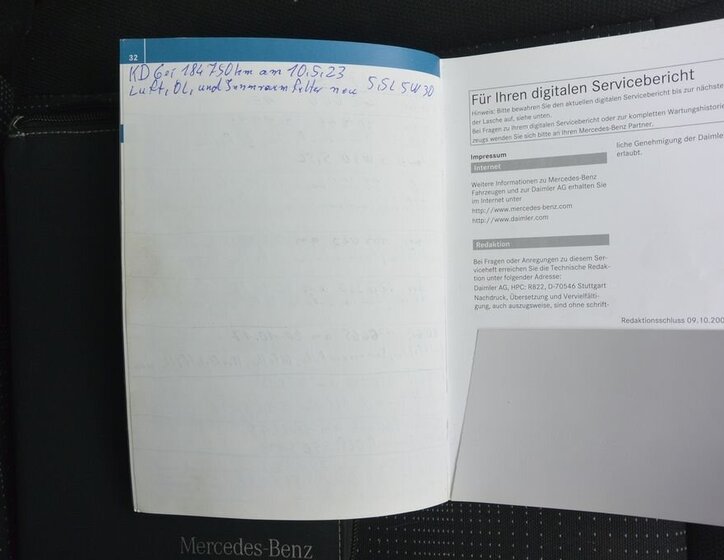 32
KD bei 184750km am 10.5.23
Luft, Öl, und Innenraumfilter neu 5,5L 5W30
Für Ihren digitalen Servicebericht
Hinweis: Bitte bewahren Sie den aktuellen digitalen Servicebericht bis zur nächste
der Lasche auf, siehe unten.
Bei Fragen zu Ihrem digitalen Servicebericht oder zur kompletten Wartungshistorie
zeugs wenden Sie sich bitte an Ihren Mercedes-Benz Partner.
Impressum
Internet
Weitere Informationen zu Mercedes-Benz
Fahrzeugen und zur Daimler AG erhalten Sie
im Internet unter
http://www.mercedes-benz.com
http://www.daimler.com
Redaktion
Bei Fragen oder Anregungen zu diesem Ser-
viceheft erreichen Sie die Technische Redak-
tion unter folgender Adresse:
Daimler AG, HPC: R822, D-70546 Stuttgart
Nachdruck, Übersetzung und Vervielfälti-
gung, auch auszugsweise, sind ohne schrift-
liche Genehmigung der Daimle
erlaubt.
Redaktionsschluss 09.10.200
Mercedes-Benz